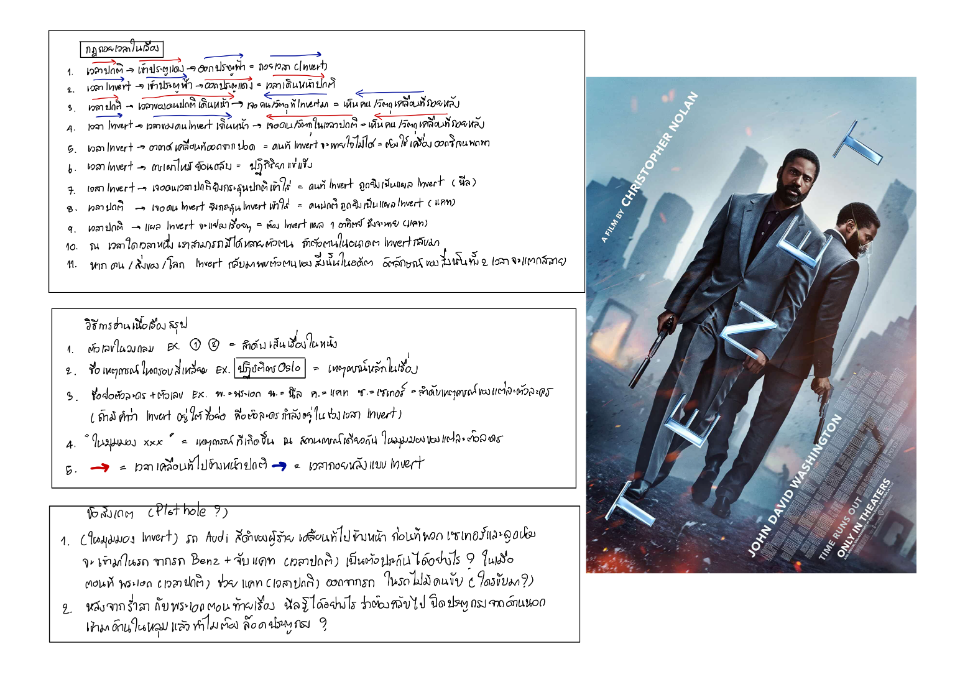 กฎถอยเวลาในเรื่อง
1. เวลาปกติ → เข้าประตูแดง → ออกประตูฟ้า = ถอยเวลา (Invert)
2. เวลา Invert → เข้าประตูฟ้า → ออกประตูแดง = เวลาเดินหน้าปกติ
3. เวลาปกติ → เวลาของคนปกติเดินหน้า → เจอคน/วัตถุที่ Invert มา = เห็นคน/วัตถุ เคลื่อนที่ถอยหลัง
4. เวลา Invert → เวลาของคน Invert เดินหน้า → เจอคน/วัตถุในเวลาปกติ = เห็นคน/วัตถุ เคลื่อนที่ถอยหลัง
5. เวลา Invert → อากาศเคลื่อนที่ออกจากปอด = คนที่ Invert จะหายใจไม่ได้ = ต้องใช้เครื่องออกซิเจนพกพา
6. เวลา Invert → การเผาไหม้ย้อนกลับ = ปฏิกิริยาแช่แข็ง
7. เวลา Invert → เจอคนเวลาปกติยิงกระสุนปกติเข้าใส่ = คนที่ Invert ถูกยิงเป็นแผล Invert (นีล)
8. เวลาปกติ → เจอคน Invert ยิงกระสุน Invert เข้าใส่ = คนปกติถูกยิงเป็นแผล Invert (แคท)
9. เวลาปกติ → แผล Invert จะแย่ลงเรื่อยๆ = ต้อง Invert แผล 1 อาทิตย์ ถึงจะหาย (แคท)
10. ณ เวลาใดเวลาหนึ่ง เราสามารถมีได้หลายตัวตน ถ้าตัวตนในอนาคต Invert กลับมา
11. หาก คน / สิ่งของ / โลก Invert กลับมาพบตัวตนของสิ่งนั้นในอดีต อัตลักษณ์ของสิ่งนั้นทั้ง 2 เวลาจะแตกสลาย
วิธีการอ่านเนื้อเรื่องสรุป
1. ตัวเลขในวงกลม EX. ① ② = ลำดับเส้นเรื่องในหนัง
2. ชื่อเหตุการณ์ในกรอบสี่เหลี่ยม EX. ปฏิบัติการ Oslo = เหตุการณ์หลักในเรื่อง
3. ชื่อย่อตัวละคร + ตัวเลข EX. พ. = พระเอก น. = นีล ค. = แคท ซ. = เซเทอร์ = ลำดับเหตุการณ์ของแต่ละตัวละคร
(ถ้ามีคำว่า Invert อยู่ใต้ชื่อย่อ คือตัวละครกำลังอยู่ในช่วงเวลา Invert)
4. "ในมุมมอง xxx" = เหตุการณ์ที่เกิดขึ้น ณ สถานการณ์เดียวกัน ในมุมมองของแต่ละตัวละคร
5. → = เวลาเคลื่อนที่ไปข้างหน้าปกติ → = เวลาถอยหลังแบบ Invert
ข้อสังเกต (Plot hole ?)
1. (ในมุมมอง Invert) รถ Audi สีดำของผู้ร้าย เคลื่อนที่ไปข้างหน้า ก่อนที่พวกเซเทอร์และลูกน้อง
จะเข้ามาในรถ จากรถ Benz + จับแคท (เวลาปกติ) เป็นตัวประกันได้อย่างไร ? ในเมื่อ
ตอนที่ พระเอก (เวลาปกติ) ช่วย แคท (เวลาปกติ) ออกจากรถ ในรถไม่มีคนขับ (ใครขับมา ?)
2. หลังจากร่ำลากับพระเอกตอนท้ายเรื่อง นีลรู้ได้อย่างไร ว่าต้องกลับไปเปิดประตูกรงจากด้านนอก
เข้ามาด้านในหลุม แล้วทำไมต้องล็อคประตูกรง ?
A FILM BY CHRISTOPHER NOLAN
TENET
JOHN DAVID WASHINGTON
TIME RUNS OUT
ONLY IN THEATERS